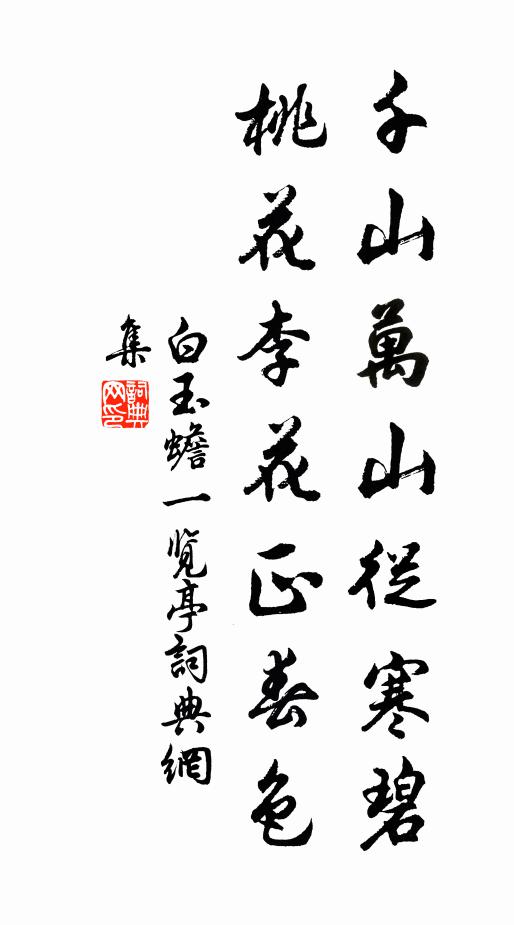 千山萬山從寒碧
桃花李花正春色
白玉蟾一览亭詞典網
集
詞典網印